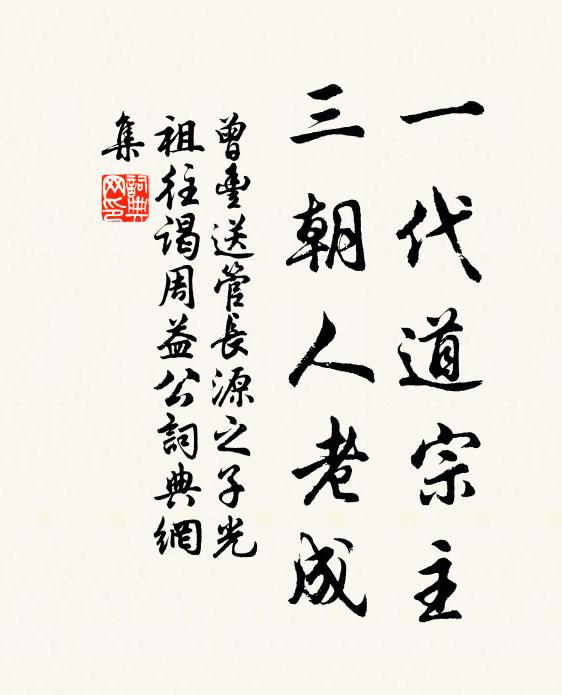 一代道宗主
三朝人老成
曾豊送管長源之子光
祖往谒周益公詞典網
集
詞典
网印